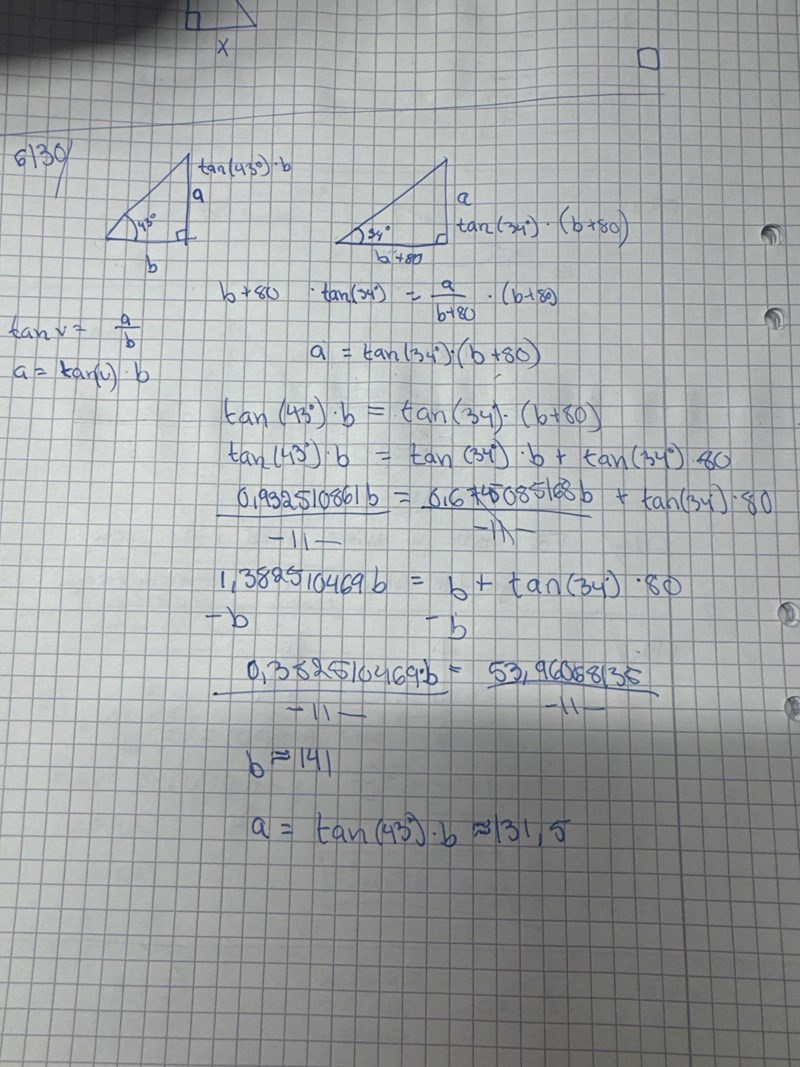 x
6130/
tan(43°)·b
a
43°
b
a
34°
tan(34°)·(b+80)
b+80
b+80 ·tan(34°) = a/b+80 ·(b+80)
tan v = a/b
a = tan(v)·b
a = tan(34°)·(b+80)
tan(43°)·b = tan(34°)·(b+80)
tan(43°)·b = tan(34°)·b + tan(34°)·80
0,932510861b = 0,6745085168b + tan(34°)·80
-11- -11-
1,382510469b = b + tan(34°)·80
-b -b
0,382510469·b = 53,96068135
-11- -11-
b ≈ 141
a = tan(43°)·b ≈ 131,5